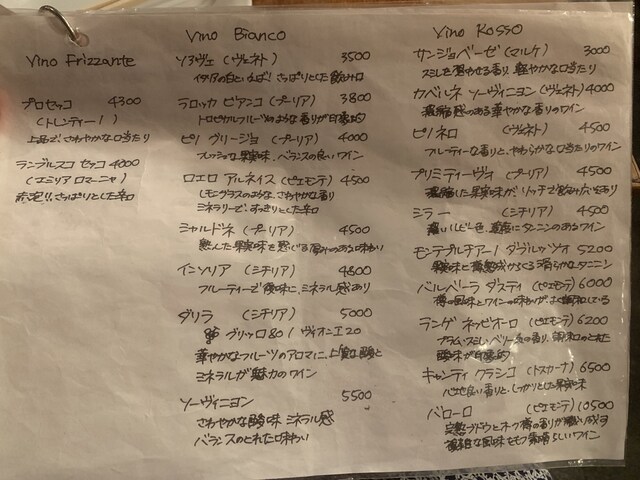 Vino Frizzante
プロセッコ 4300
(トレンティーノ)
上品で、さわやかな口当たり
ランブルスコ セッコ 4000
(エミリア ロマーニャ)
赤泡り、さっぱりとした辛口
Vino Bianco
ソアヴェ (ヴェネト) 3500
イタリアの白といえば! さっぱりとした飲み口
テロッカ ビアンコ (プーリア) 3800
トロピカルフルーツのような香りが印象的
ピノ グリージョ (プーリア) 4000
フレッシュな果実味、バランスの良いワイン
ロエロ アルネイス (ピエモンテ) 4500
レモングラスのような、さわやかな香り
ミネラリーで、すっきりとした辛口
シャルドネ (プーリア) 4500
熟した果実味を感じる厚みのある味わい
インソリア (シチリア) 4800
フルーティーで後味に、ミネラル感あり
ダリラ (シチリア) 5000
グリッロ80/ヴィオニエ20
華やかなフルーツのアロマに、上質な酸と
ミネラルが魅力のワイン
ソーヴィニヨン 5500
さわやかな酸味 ミネラル感
バランスのとれた味わい
Vino Rosso
サンジョベーゼ (マルケ) 3000
スミレを思わせる香り 軽やかな口当たり
カベルネ ソーヴィニヨン (ヴェネト) 4000
凝縮感のある華やかな香りのワイン
ピノネロ (ヴェネト) 4500
フルーティーな香りと、やわらかな口当たりのワイン
プリミティーヴォ (プーリア) 4500
凝縮した果実味が、リッチで飲み応えあり
シラー (シチリア) 4500
濃いルビー色、適度にタンニンのあるワイン
モンテプルチアーノ ダブルッツォ 5200
果実味と長熟成からくる滑らかなタンニン
バルベーラ ダスティ (ピエモンテ) 6000
樽の風味とワインの味わいが、よく調和している
ランゲ ネッビオーロ (ピエモンテ) 6200
プラム・スミレ・ベリー系の香り、調和のとれた
酸味が印象的
キャンティ クラシコ (トスカーナ) 6500
心地良い香りと、しっかりとした果実味
バローロ (ピエモンテ) 10500
完熟ブドウとオーク樽の香りが織り成す
複雑な風味をもつ素晴らしいワイン